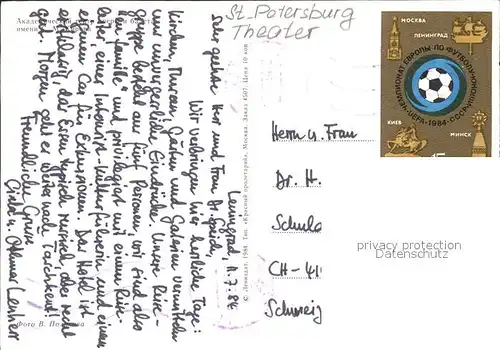 St. Petersburg
Theater
Академический
имени
Leningrad, 11.7.84
Sehr geehrte Herr und Frau Dr.
Wir verbringen hier herrliche Tage:
Kirchen, Museen, Gärten und Galerien vermitteln
uns unvergessliche Eindrücke. Unsere Reise-
gruppe besteht aus fünf Personen, wir sind also
"en famille" und privilegiert mit einem Reise-
leiter, einer Intourist-Kulturführerin und einem
eigenen Car für Exkursionen. Das Hotel ist
erstklassig, das Essen typisch russisch, aber recht
gut. Morgen geht es weiter nach Taschkent!
Freundliche Grüsse
Фото В.
© 1984. «Красный пролетарий». Москва. Заказ 4597. Цена 10 коп
МОСКВА
ЛЕНИНГРАД
ЧЕМПИОНАТ ЕВРОПЫ ПО ФУТБОЛУ
УЕФА-1984-СССР
КИЕВ
МИНСК
Herrn u. Frau
Dr. H.
CH-41
Schweiz
privacy protection